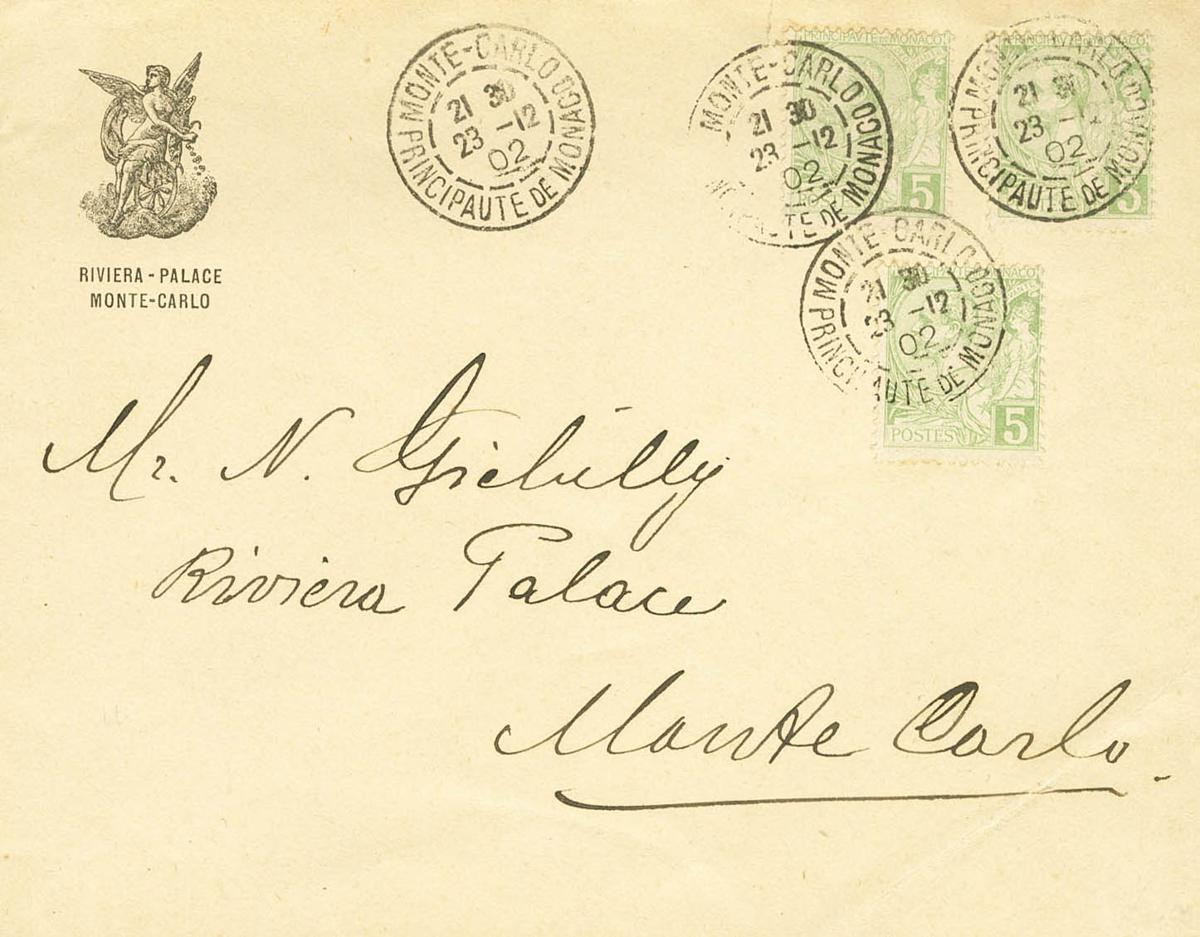 MONTE-CARLO
PRINCIPAUTE DE MONACO
21 30
23 -12
02
MONTE-CARLO
DE MONACO
21 30
23 -12
02
PRINCIPAUTÉ DE MONACO
5
PRINCIPAUTE DE MONACO
21 30
23 -12
02
5
RIVIERA - PALACE
MONTE-CARLO
MONTE-CARLO
PRINCIPAUTE DE MONACO
21 30
23 -12
02
POSTES
5
Mr. N.
Riviera Palace
Monte Carlo